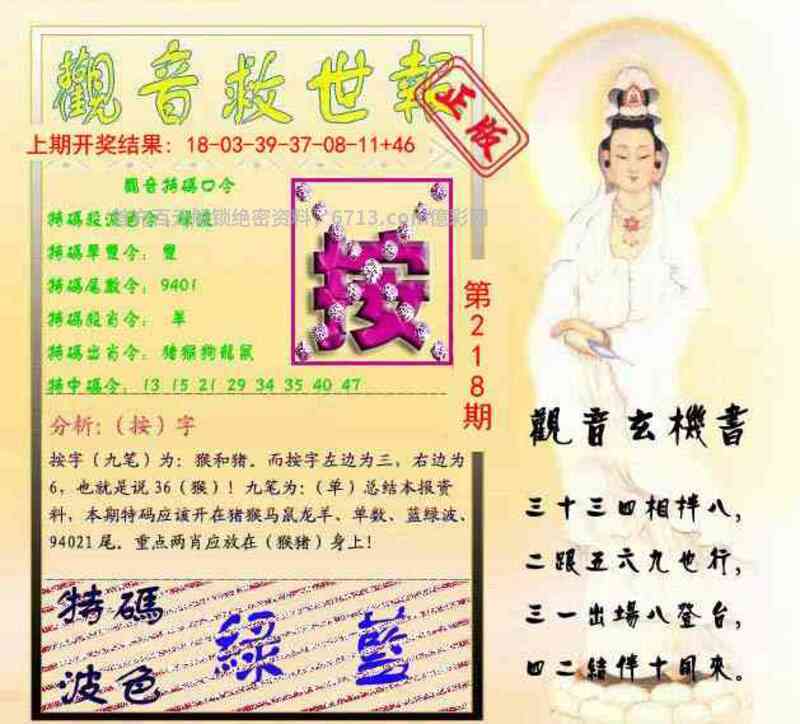 觀音救世報
正版
上期开奖结果：18-03-39-37-08-11+46
觀音特碼口令
特碼單雙令：雙
特碼尾數令：9401
特碼殺肖令：羊
特碼出肖令：猪猴狗龍鼠
特中碼令：13 15 21 29 34 35 40 47
按
第218期
分析:（按）字
按字（九笔）为：猴和猪．而按字左边为三，右边为
6，也就是说 36（猴）！九笔为：（单）总结本报资
料，本期特码应该开在猪猴马鼠龙羊、单数、蓝绿波、
94021 尾．重点两肖应放在（猴猪）身上！
特碼
波色
綠 藍
觀音玄機書
三十三四相拌八，
二跟五六九也行，
三一出場八登台，
四二結伴十同來。